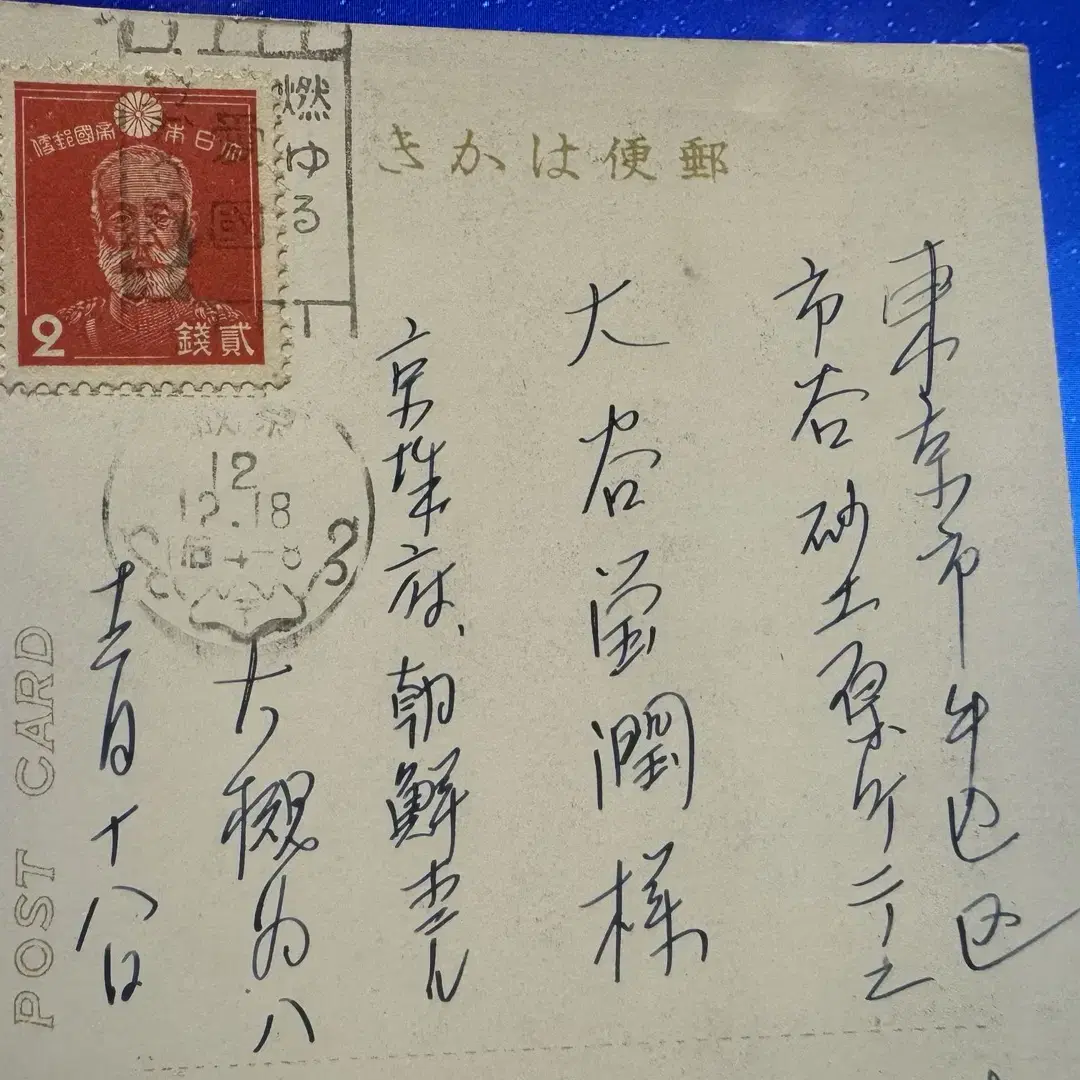 きかは便郵
東京市牛込区
市谷砂土原町二ノ三
大谷瑩潤様
京城府、朝鮮ホテル
大槻為八
十二月十八日
燃ゆる
愛國
日本帝國郵便
2
貳錢
12
12.18
POST CARD